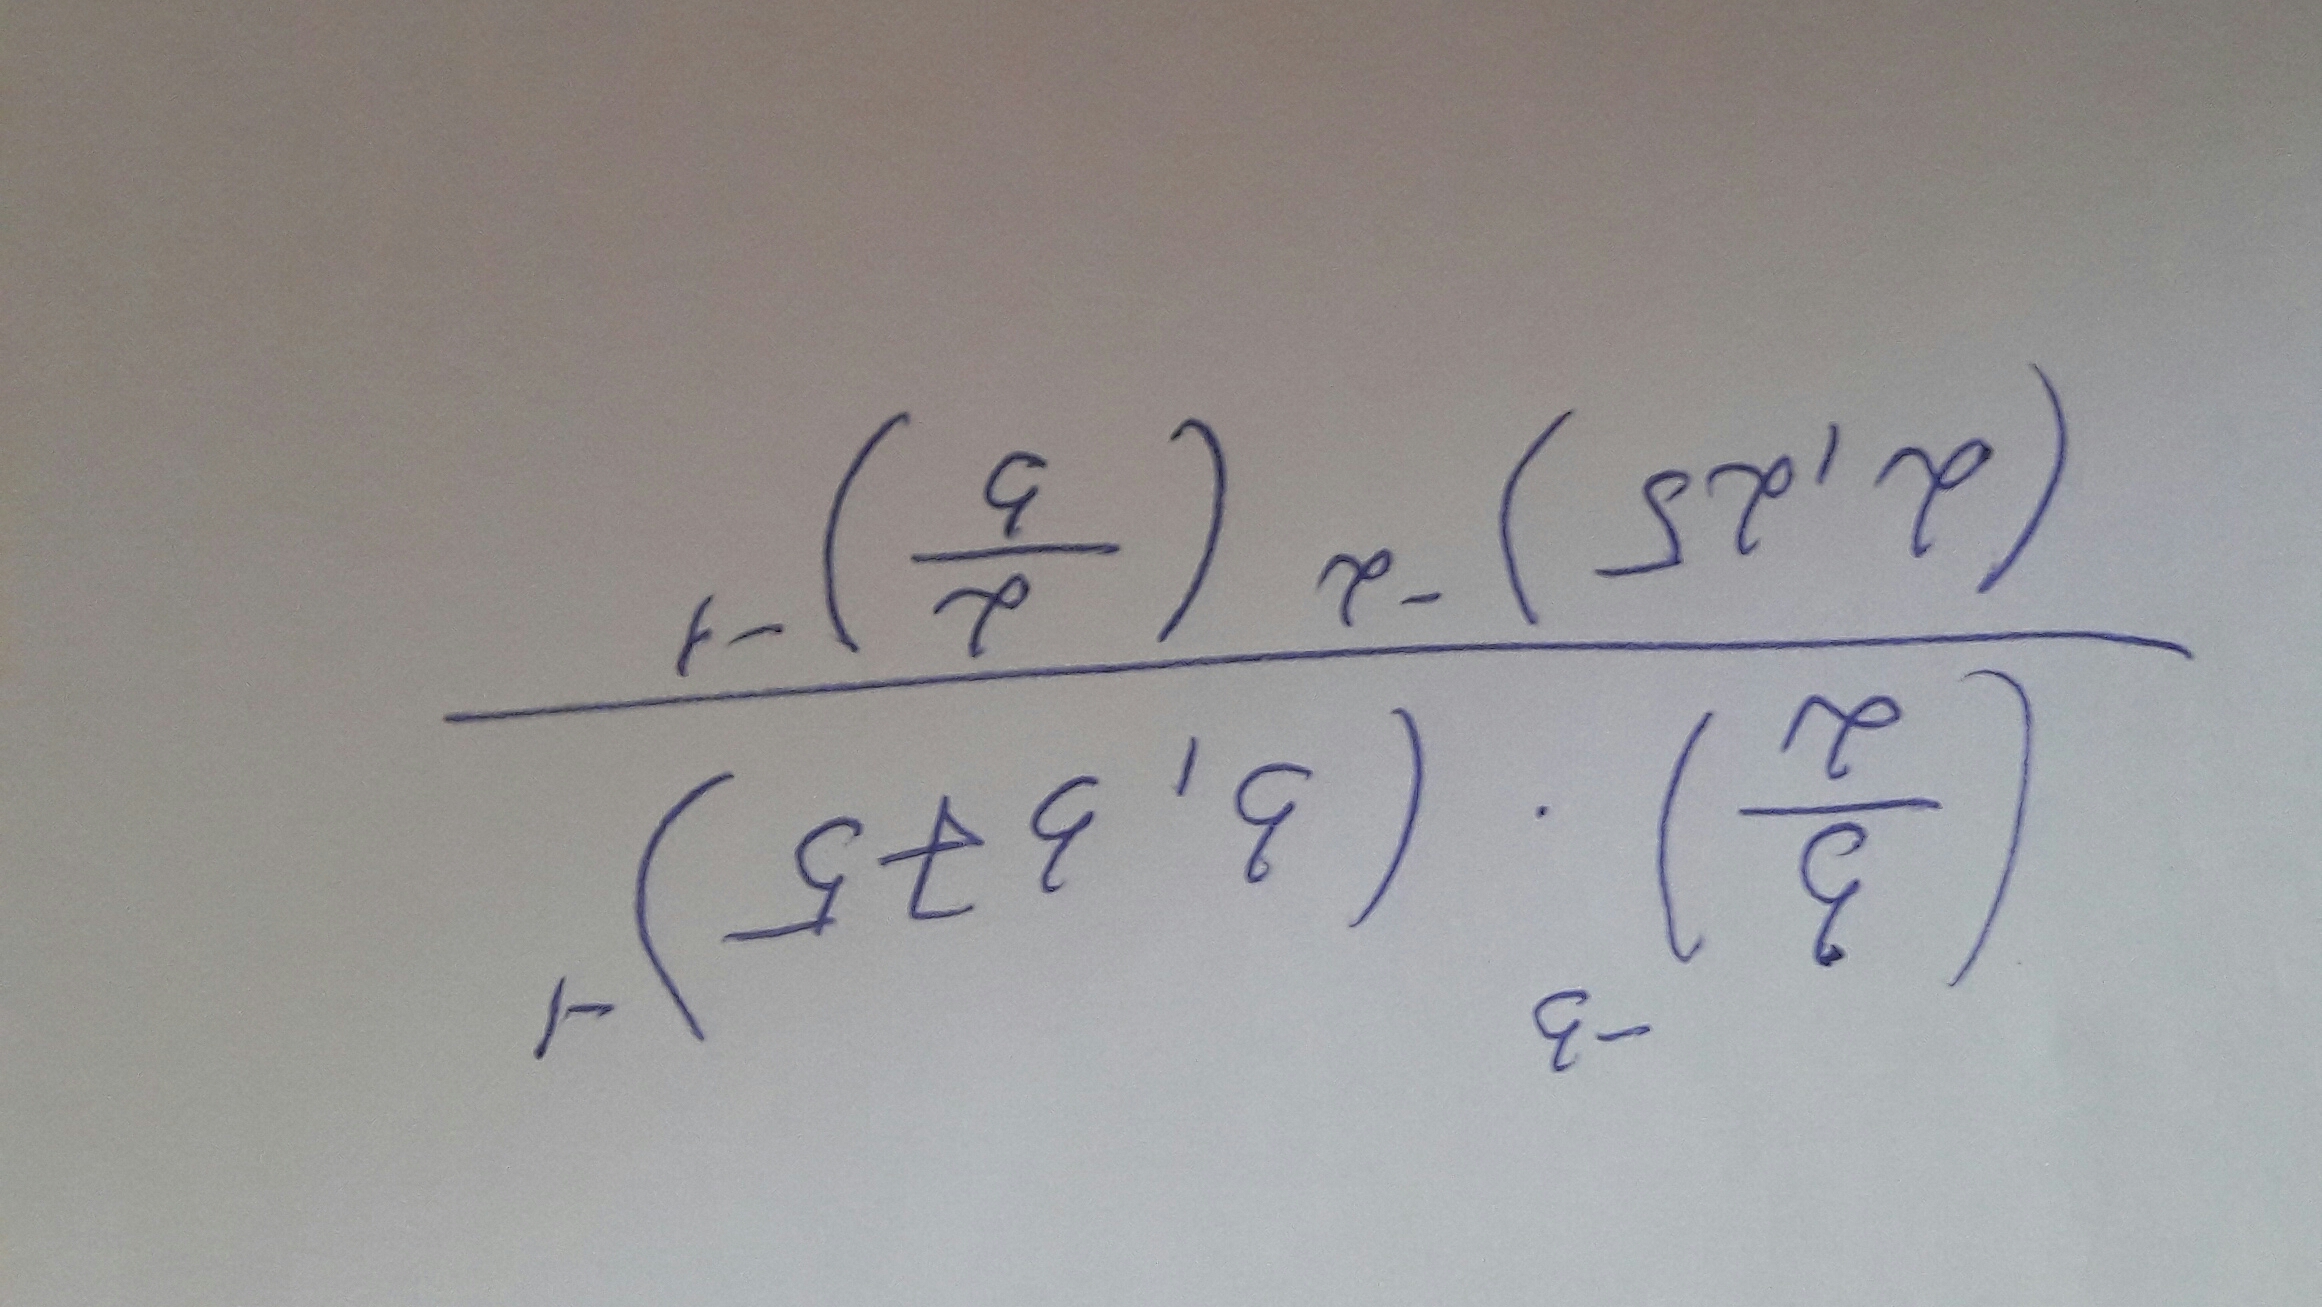 (3/2)^-3 · (3,375)^-1
(2,25)^-2 (2/3)^-1